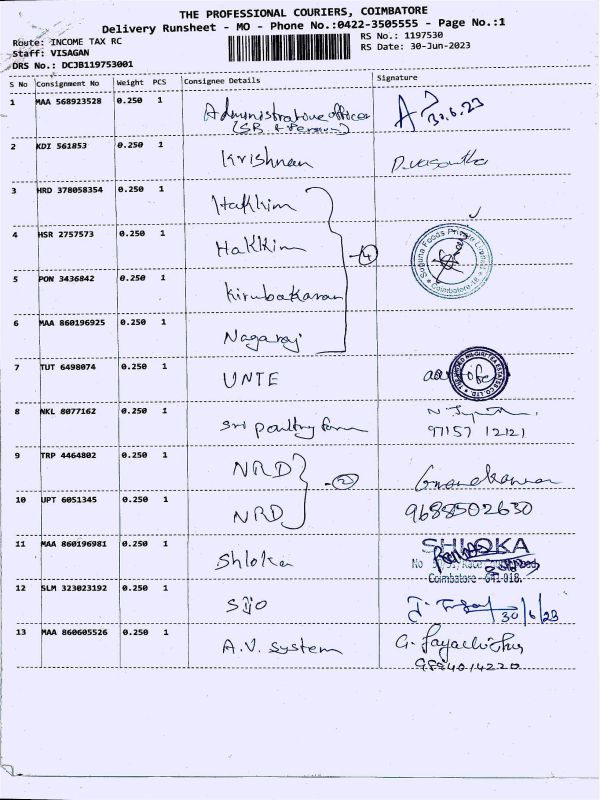 THE PROFESSIONAL COURIERS, COIMBATORE
Delivery Runsheet - MO - Phone No.:0422-3505555 - Page No.:1
Route: INCOME TAX RC
RS No.: 1197530
Staff: VISAGAN
RS Date: 30-Jun-2023
DRS No.: DCJB119753001
S No Consignment No Weight PCS Consignee Details Signature
1 MAA 568923528 0.250 1 Administrative officer 30.6.23
2 KDI 561853 0.250 1 Krishnan D.vasantha
3 HRD 378058354 0.250 1 Hakkim
4 HSR 2757573 0.250 1 Hakkim Suguna Foods Private Limited Coimbatore-18
(4)
5 PON 3436842 0.250 1 Kirubakaran
6 MAA 860196925 0.250 1 Nagaraj
7 TUT 6498074 0.250 1 UNTE
8 NKL 8077162 0.250 1 Sri poultry farm
97157 12121
9 TRP 4464802 0.250 1 NRD
(2)
10 UPT 6051345 0.250 1 NRD 9688502630
11 MAA 860196981 0.250 1 Shloka SHLOKA
Coimbatore - 641 018.
12 SLM 323023192 0.250 1 Sijo 30/6/23
13 MAA 860605526 0.250 1 A.V. System
9894014220